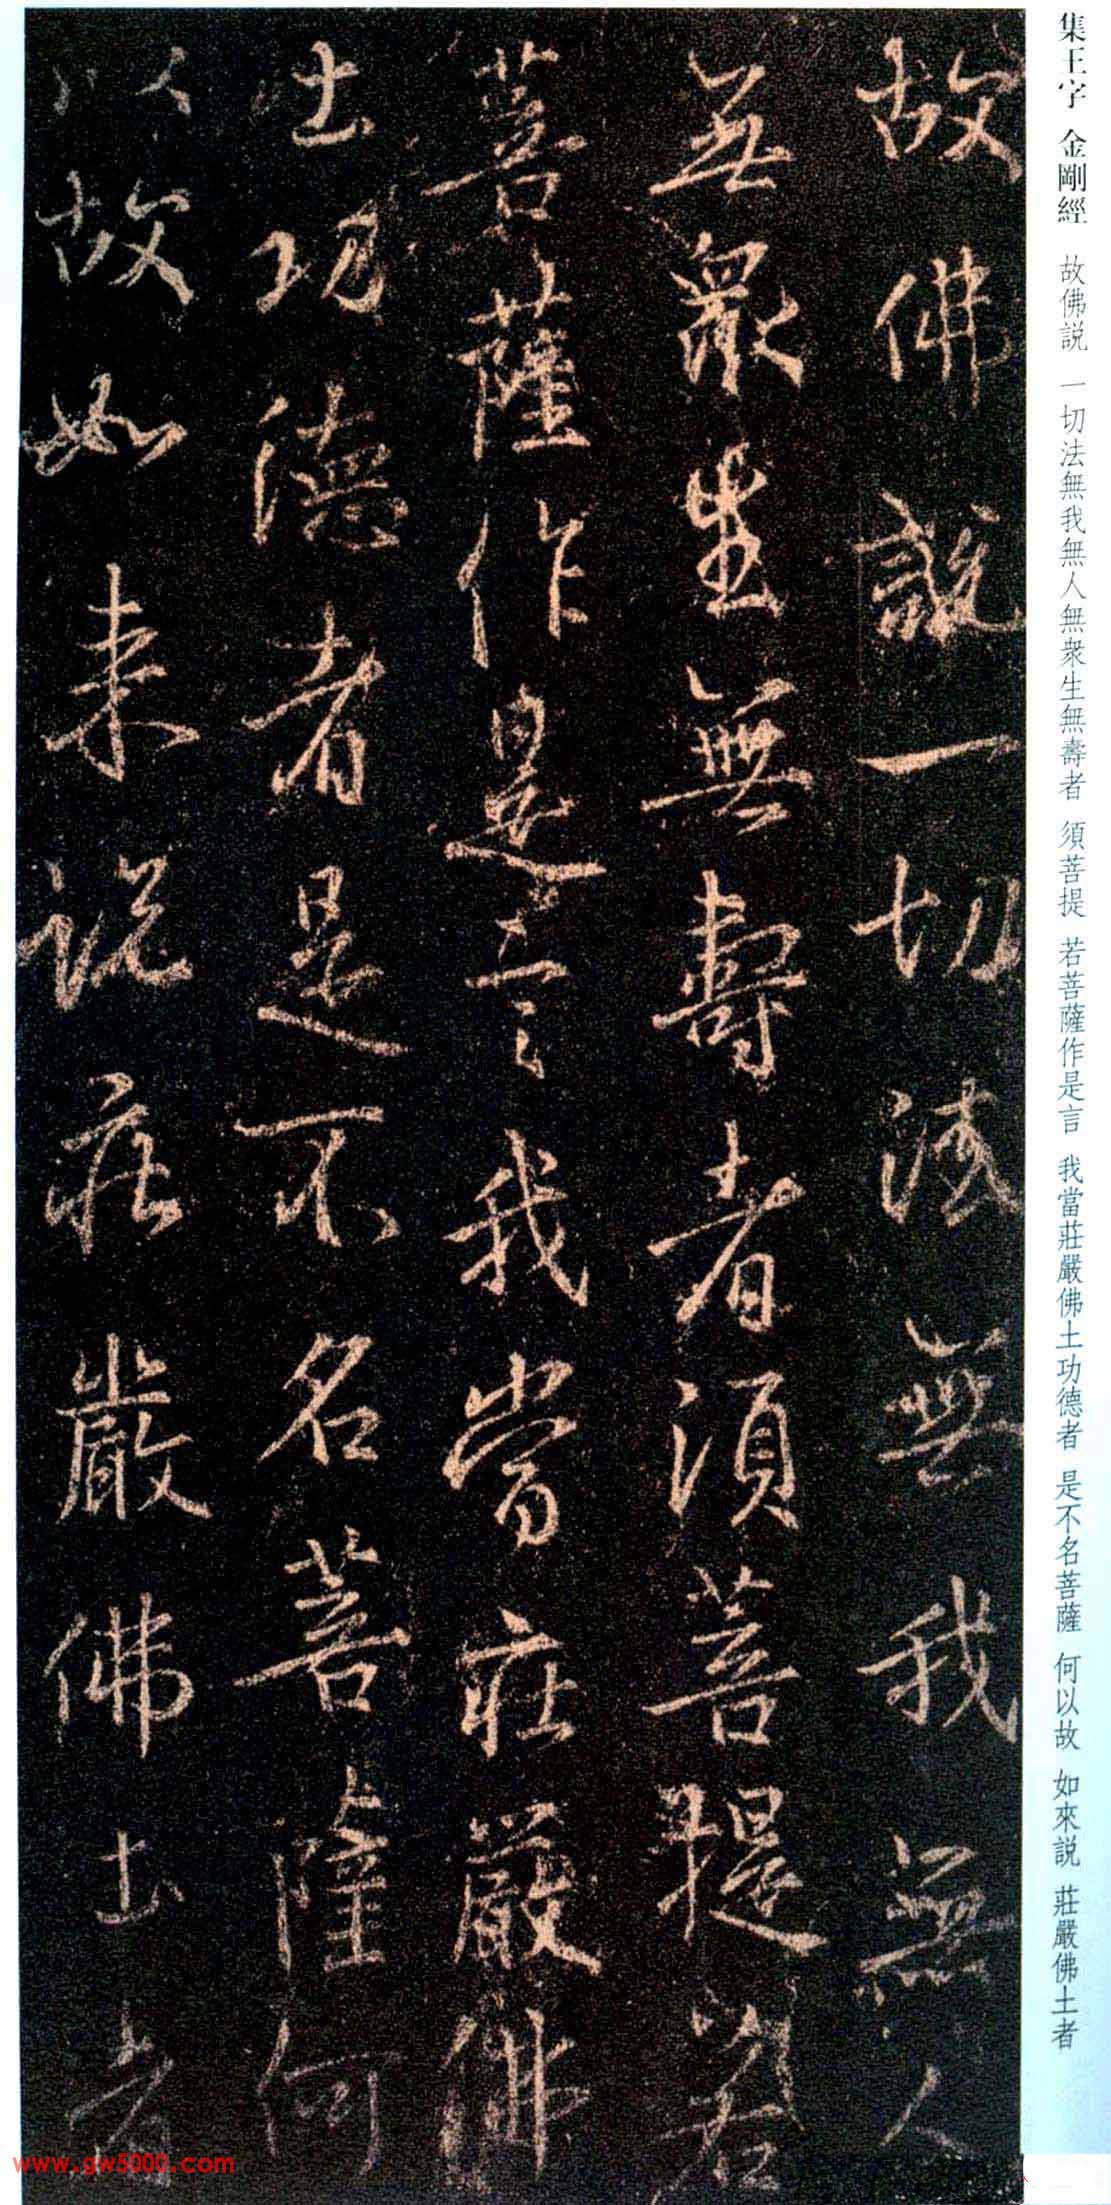 集王字 金剛經 故佛説 一切法無我無人無衆生無壽者 須菩提 若菩薩作是言 我當莊嚴佛土功德者 是不名菩薩 何以故 如來説 莊嚴佛土者
故佛說一切法無我無人
無衆生無壽者須菩提若
菩薩作是言我當莊嚴佛
土功德者是不名菩薩何
以故如来說莊嚴佛土者
www.gw5000.com